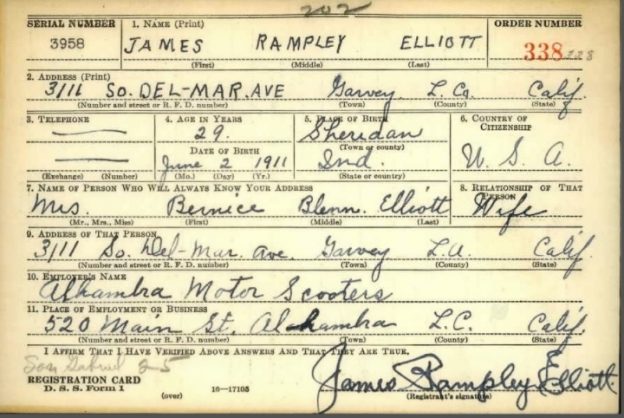 202
SERIAL NUMBER 1. NAME (Print) ORDER NUMBER
3958 JAMES RAMPLEY ELLIOTT 338
(First) (Middle) (Last)
2. ADDRESS (Print)
3111 SO. DEL-MAR. AVE Garvey L. Co. Calif
(Number and street or R. F. D. number) (Town) (County) (State)
3. TELEPHONE 4. AGE IN YEARS 5. PLACE OF BIRTH 6. COUNTRY OF CITIZENSHIP
29. Sheridan
DATE OF BIRTH (Town or county)
June 2 1911 Ind. U. S. A.
(Exchange) (Number) (Mo.) (Day) (Yr.) (State or country)
7. NAME OF PERSON WHO WILL ALWAYS KNOW YOUR ADDRESS 8. RELATIONSHIP OF THAT PERSON
Mrs. Bernice Blenn. Elliott Wife
(Mr., Mrs., Miss) (First) (Middle) (Last)
9. ADDRESS OF THAT PERSON
3111 So. Del-Mar. Ave. Garvey L.A. Calif.
(Number and street or R. F. D. number) (Town) (County) (State)
10. EMPLOYER'S NAME
Alhambra Motor Scooters
11. PLACE OF EMPLOYMENT OR BUSINESS
520 Main St. Alhambra L.C. Calif.
(Number and street or R. F. D. number) (Town) (County) (State)
I AFFIRM THAT I HAVE VERIFIED ABOVE ANSWERS AND THAT THEY ARE TRUE.
San Gabriel
REGISTRATION CARD James Rampley Elliott
D. S. S. Form 1 (over) 16—17105 (Registrant's signature)